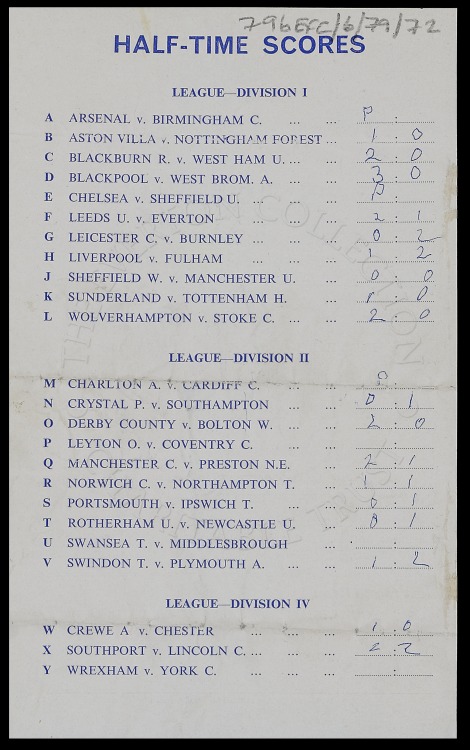 796EFC/6/79/72
HALF-TIME SCORES
LEAGUE—DIVISION I
A ARSENAL v. BIRMINGHAM C. ... ... P :
B ASTON VILLA v. NOTTINGHAM FOREST ... 1 : 0
C BLACKBURN R. v. WEST HAM U. ... ... 2 : 0
D BLACKPOOL v. WEST BROM. A. ... ... 3 : 0
E CHELSEA v. SHEFFIELD U. ... ... P :
F LEEDS U. v. EVERTON ... ... 2 : 1
G LEICESTER C. v. BURNLEY ... ... 0 : 2
H LIVERPOOL v. FULHAM ... ... 1 : 2
J SHEFFIELD W. v. MANCHESTER U. ... 0 : 0
K SUNDERLAND v. TOTTENHAM H. ... : 0
L WOLVERHAMPTON v. STOKE C. ... ... 2 : 0
LEAGUE—DIVISION II
M CHARLTON A. v. CARDIFF C. ... ... P :
N CRYSTAL P. v. SOUTHAMPTON ... ... 0 : 1
O DERBY COUNTY v. BOLTON W. ... ... 2 : 0
P LEYTON O. v. COVENTRY C. ... ... :
Q MANCHESTER C. v. PRESTON N.E. ... 2 : 1
R NORWICH C. v. NORTHAMPTON T. ... 1 : 1
S PORTSMOUTH v. IPSWICH T. ... ... 0 : 1
T ROTHERHAM U. v. NEWCASTLE U. ... 0 : 1
U SWANSEA T. v. MIDDLESBROUGH ... :
V SWINDON T. v. PLYMOUTH A. ... ... 1 : 2
LEAGUE—DIVISION IV
W CREWE A v. CHESTER ... ... ... 1 : 0
X SOUTHPORT v. LINCOLN C. ... ... ... : 2
Y WREXHAM v. YORK C. ... ... ... :